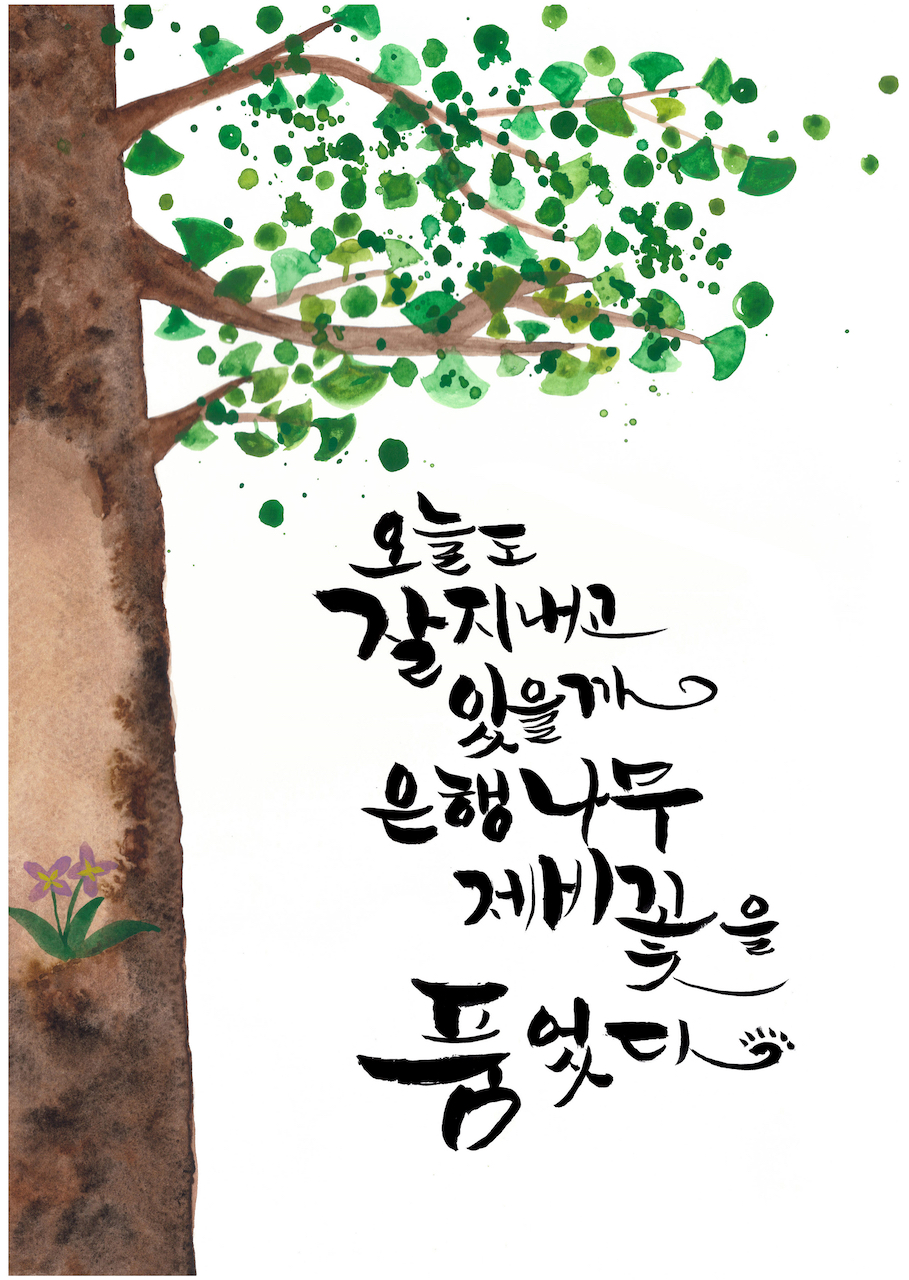 오늘도
잘지내고
있을까
은행나무
제비꽃을
품었다